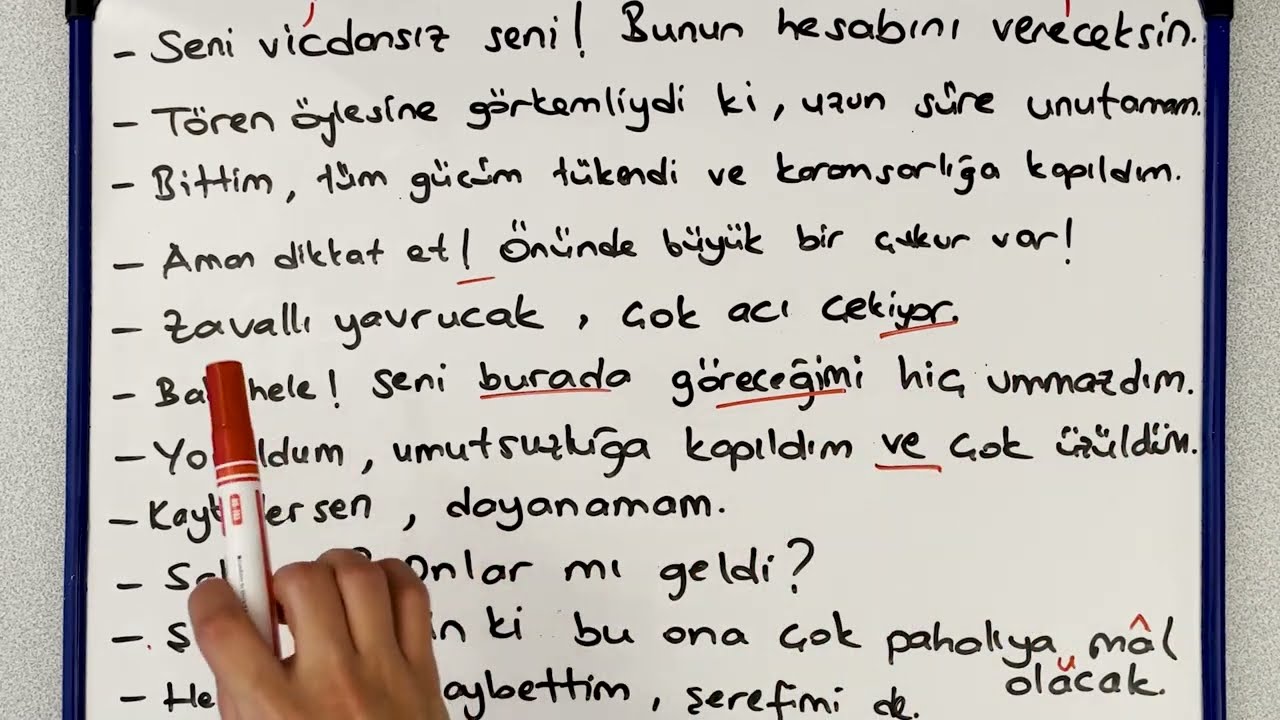 - Seni vicdansız seni! Bunun hesabını vereceksin.
- Tören öylesine görkemliydi ki, uzun süre unutamam.
- Bittim, tüm gücüm tükendi ve karamsarlığa kapıldım.
- Aman dikkat et! Önünde büyük bir çukur var!
- Zavallı yavrucak, çok acı çekiyor.
- hele! Seni burada göreceğimi hiç ummazdım.
- umutsuzluğa kapıldım ve çok üzüldüm.
- dayanamam.
- onlar mı geldi?
- ki bu ona çok pahalıya mâl
olacak.
- şerefimi de.